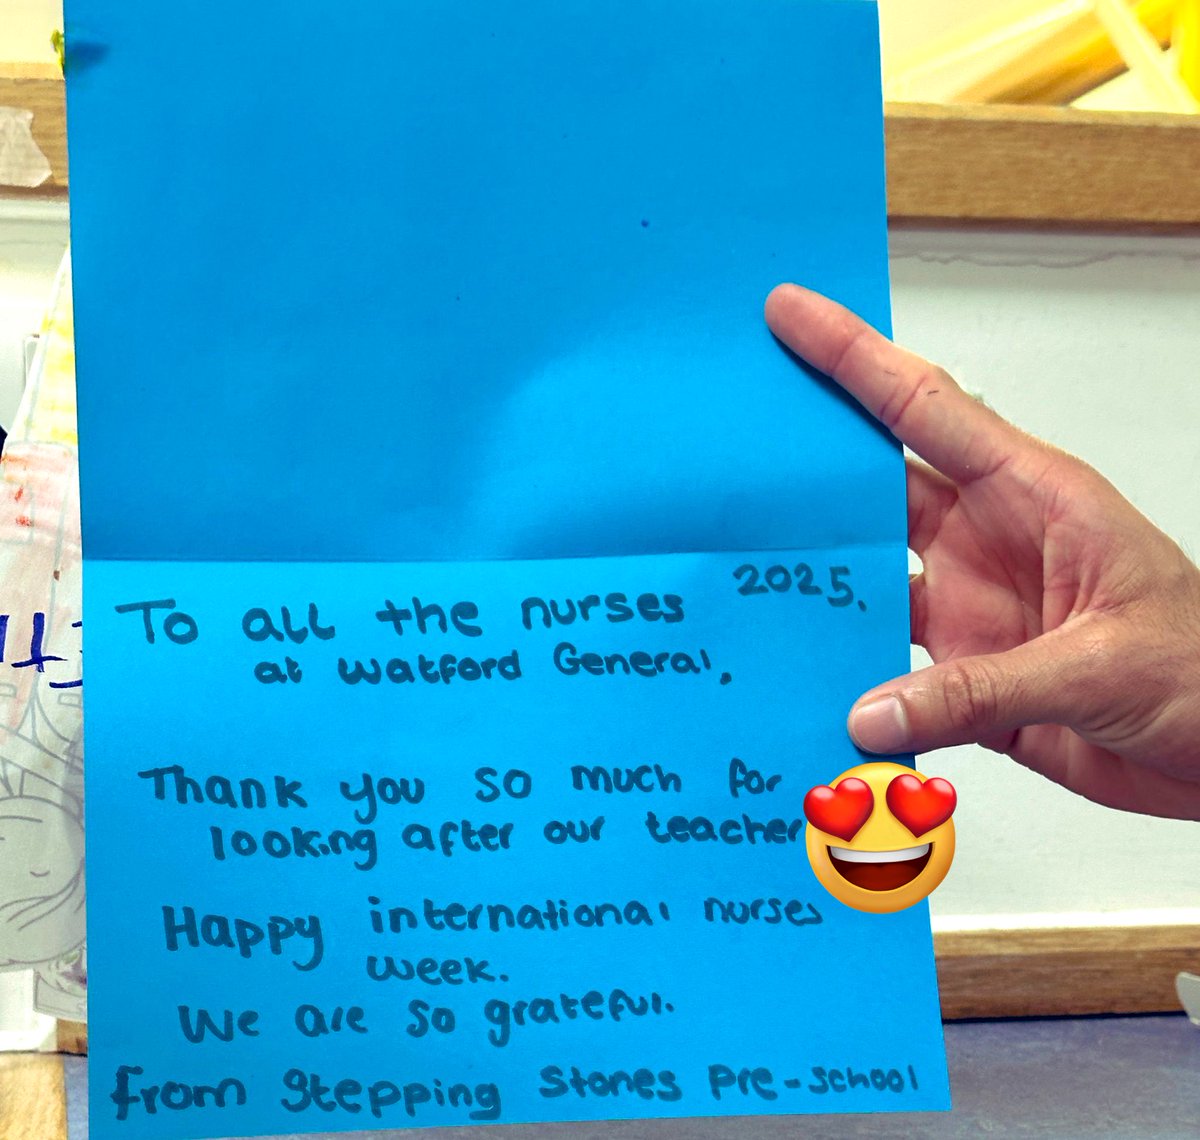 2025.
To all the nurses
at Watford General,
Thank you so much for
looking after our teacher
Happy international nurses
week.
We are so grateful.
From Stepping Stones Pre-school